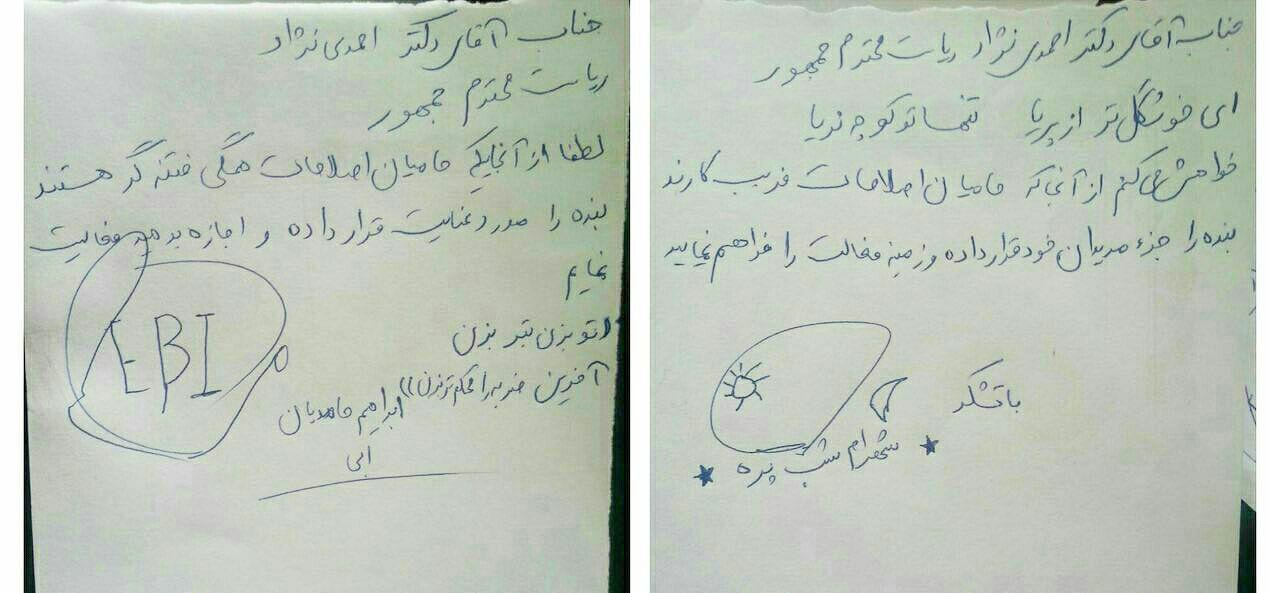 جناب آقای دکتر احمدی نژاد
ریاست محترم جمهور
لطفا از آنجایکه حامیان اصلاحات همگی فتنه گر هستند
بنده را مورد عنایت قرار داده و اجازه بدهید فعالیت
نمایم
EBI
تو بزن تبر بزن
آفرین ضربه را محکم تر بزن))
ابراهیم حامدیان
ابی
جناب آقای دکتر احمدی نژاد ریاست محترم جمهور
ای خوشگل تر از پریا تنها تو کوچه نریا
خواهش می کنم از آنجا که حامیان اصلاحات فریب کارند
بنده را جزء مریدان خود قرار داده و زمینه فعالت را فراهم نمایید
با تشکر
شهرام شب پره